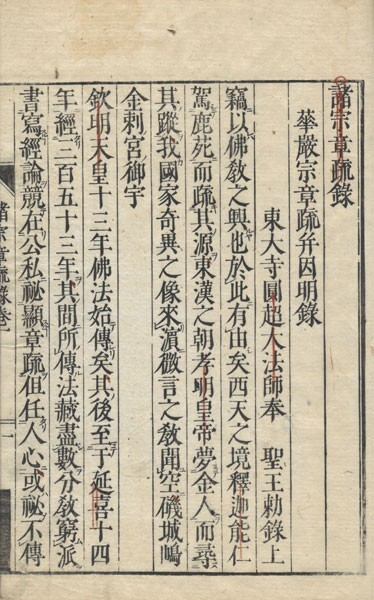 諸宗章疏錄
華嚴宗章疏幷因明錄
東大寺圓超大法師奉　聖王勅錄上
竊以佛敎之興也於此有由矣西天之境釋迦能仁
駕鹿苑而疏其源東漢之朝孝明皇帝夢金人而尋
其蹤我國家奇異之像來濵微言之敎聞空礒城嶋
金剌宮御宇
欽明天皇十三年佛法始傳矣其後至于延喜十四
年經三百五十三年其間所傳法藏盡數分敎窮派
書寫經論競在公私祕顯章疏但任人心或祕不傳
諸宗章疏錄卷一